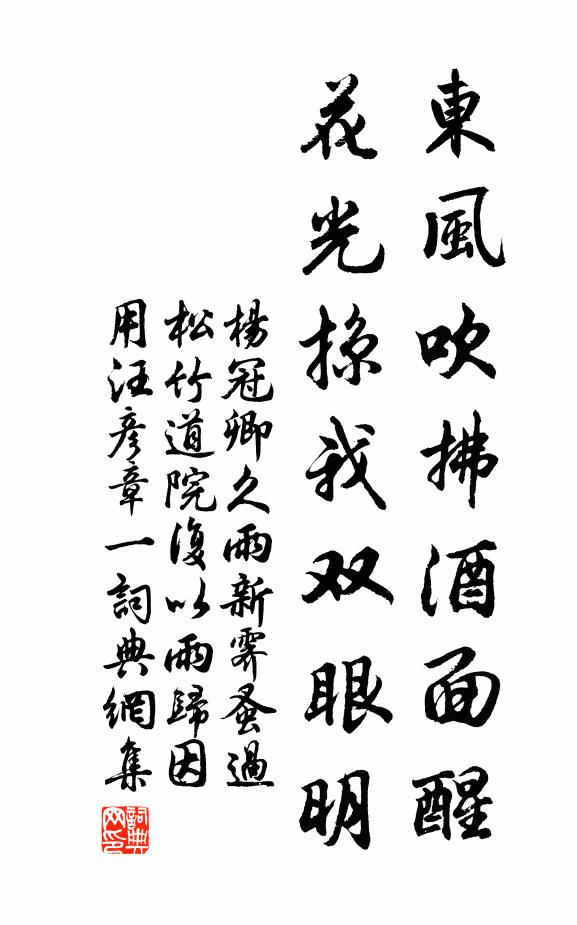 東風吹拂酒面醒
花光掠我双眼明
楊冠卿久雨新霽蚤過
松竹道院復以雨歸因
用汪彦章一詞典網集
詞典网印